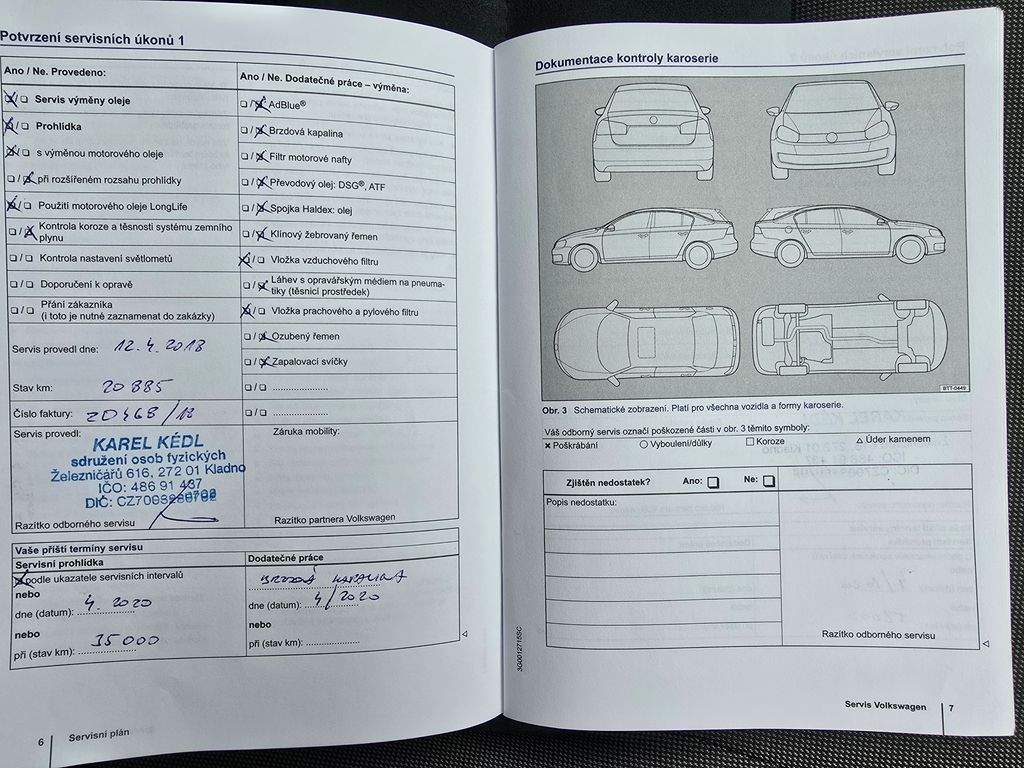 Potvrzení servisních úkonů 1
Ano / Ne. Provedeno:
Servis výměny oleje
Prohlídka
s výměnou motorového oleje
při rozšířeném rozsahu prohlídky
Použití motorového oleje LongLife
Kontrola koroze a těsnosti systému zemního
plynu
Kontrola nastavení světlometů
Doporučení k opravě
Přání zákazníka
(i toto je nutné zaznamenat do zakázky)
Servis provedl dne: 12.4.2018
Stav km: 20885
Číslo faktury: 20468/18
Servis provedl:
KAREL KÉDL
sdružení osob fyzických
Železničářů 616, 272 01 Kladno
IČO: 486 91 437
DIČ:
Razítko odborného servisu
Ano / Ne. Dodatečné práce – výměna:
AdBlue®
Brzdová kapalina
Filtr motorové nafty
Převodový olej: DSG®, ATF
Spojka Haldex: olej
Klínový žebrovaný řemen
Vložka vzduchového filtru
Láhev s opravářským médiem na pneuma-
tiky (těsnicí prostředek)
Vložka prachového a pylového filtru
Ozubený řemen
Zapalovací svíčky
Záruka mobility:
Razítko partnera Volkswagen
Vaše příští termíny servisu
Servisní prohlídka
podle ukazatele servisních intervalů
nebo
dne (datum): 4. 2020
nebo
při (stav km): 35000
Dodatečné práce
BRZDOVÁ KAPALINA
dne (datum): 4/2020
nebo
při (stav km):
6 Servisní plán
Dokumentace kontroly karoserie
BTT-0449
Obr. 3 Schematické zobrazení. Platí pro všechna vozidla a formy karoserie.
Váš odborný servis označí poškozené části v obr. 3 těmito symboly:
× Poškrábání ○ Vyboulení/důlky □ Koroze △ Úder kamenem
Zjištěn nedostatek? Ano: □ Ne: □
Popis nedostatku:
Razítko odborného servisu
3G0012715SC
Servis Volkswagen 7